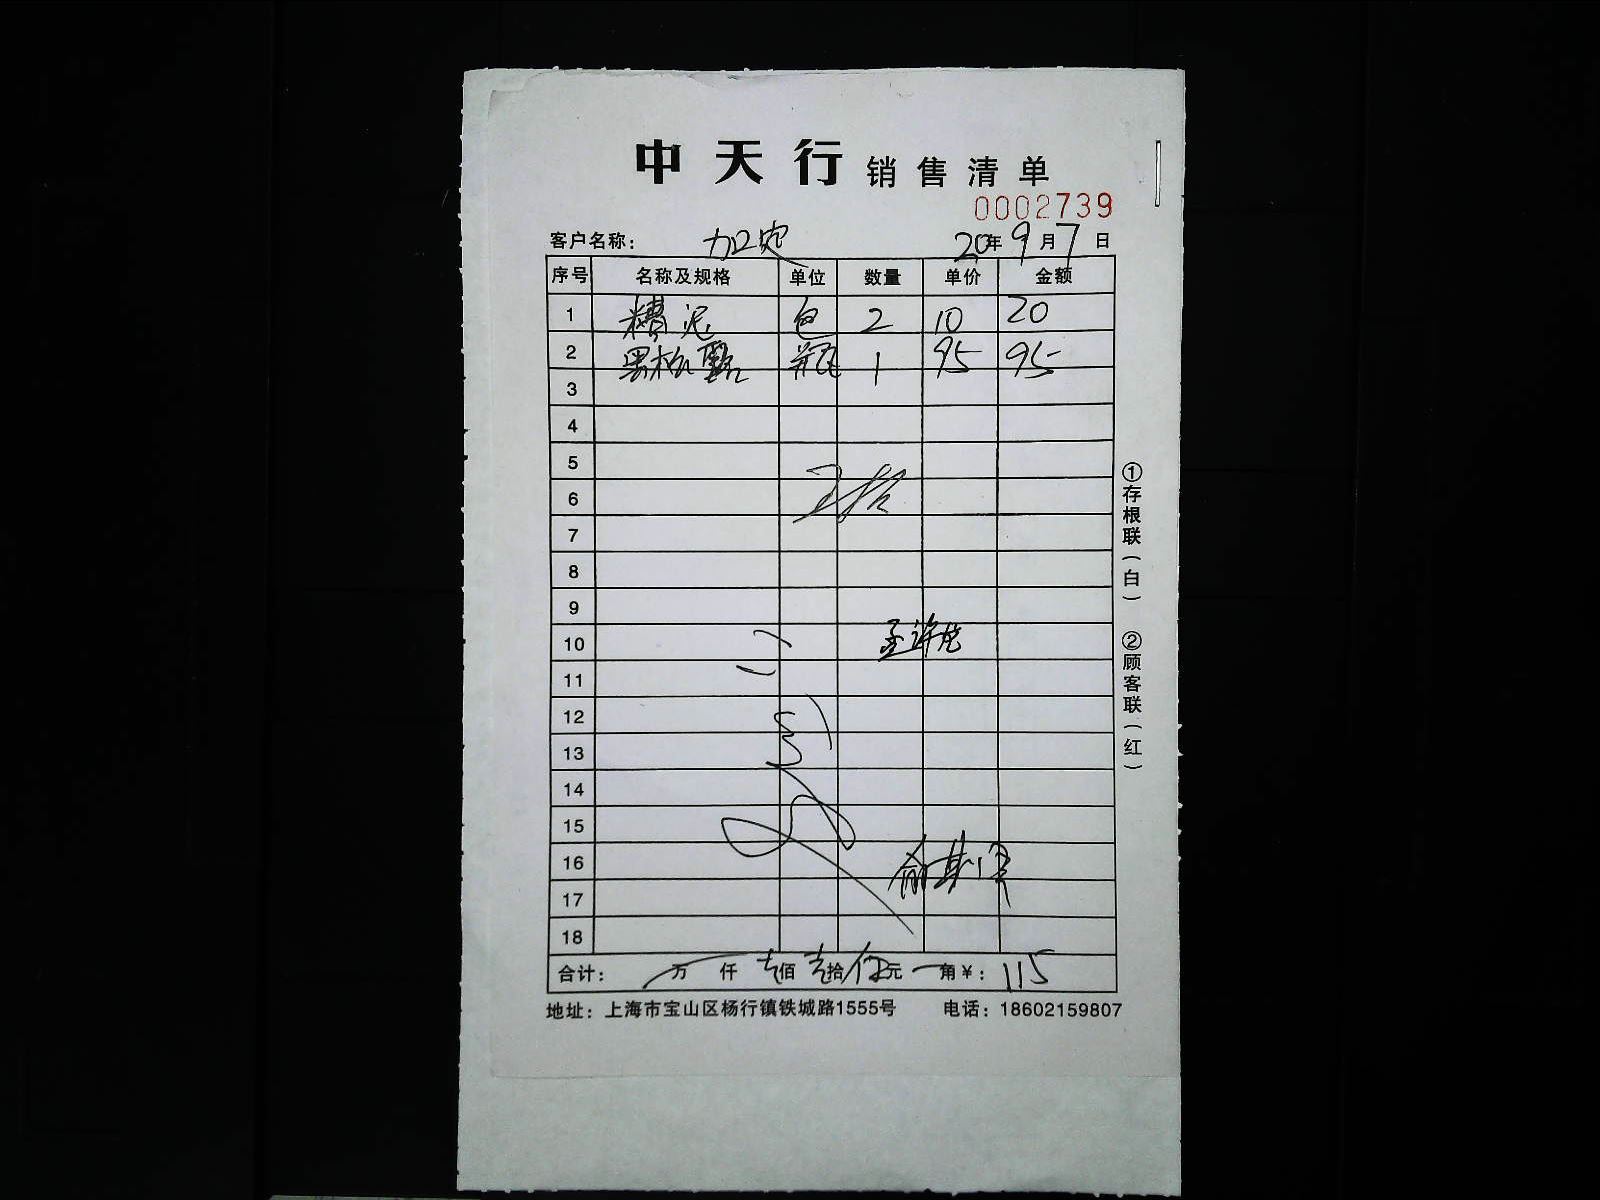 中天行 销售清单
0002739
客户名称： 加定 20年9月7日
序号 名称及规格 单位 数量 单价 金额
1 糟泥 包 2 10 20
2 黑松露 瓶 1 95 95
3
4
5
6
7
8
9
10
11
12
13
14
15
16
17
18
合计： 万 仟 壹佰壹拾伍元 角 ¥：115
地址：上海市宝山区杨行镇铁城路1555号 电话：18602159807
①存根联（白） ②顾客联（红）